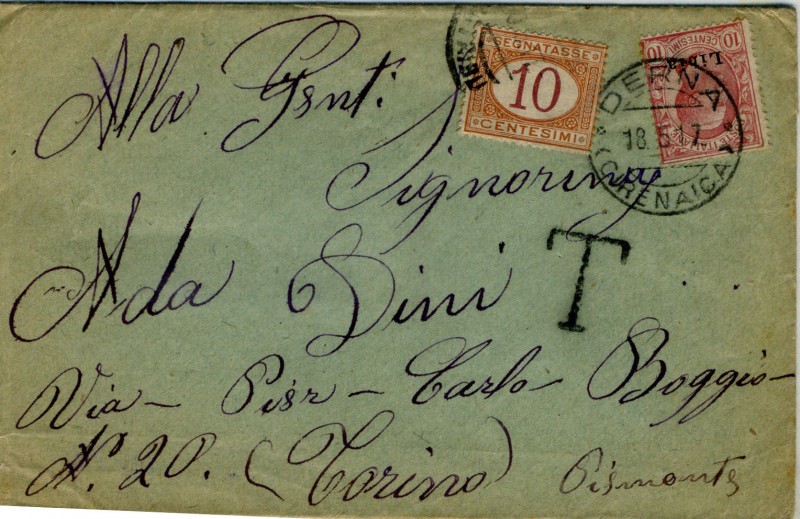 SEGNATASSE
10
CENTESIMI
10 CENTESIMI 10
Libia
POSTE ITALIANE
DERNA
18. 5. 7
(CIRENAICA)
T
Alla Gent:
Signorina
Ada Dini
Via - Pier - Carlo - Boggio -
N° 20. (Torino) Piemonte